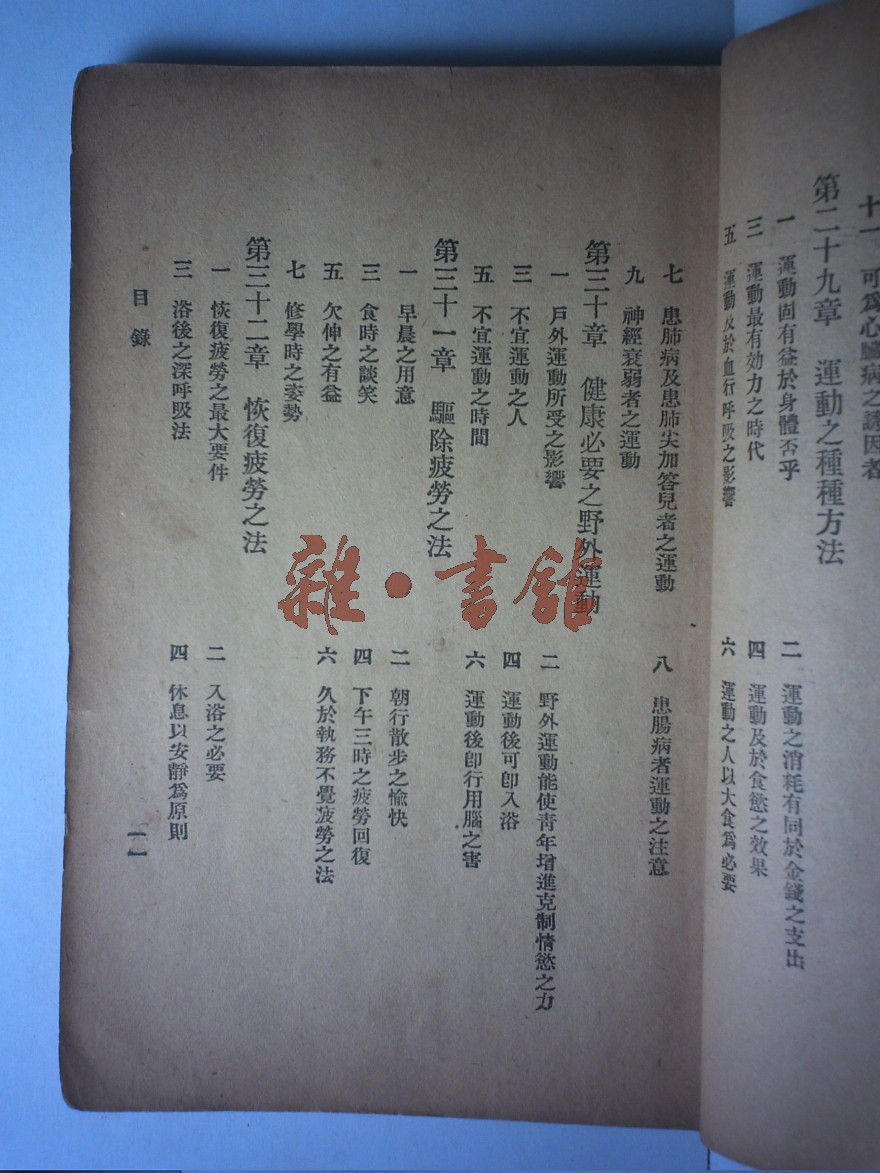 十一 可爲心臟病之誘因者
第二十九章 運動之種種方法
一 運動固有益於身體否乎
二 運動之消耗有同於金錢之支出
三 運動最有効力之時代
四 運動及於食慾之效果
五 運動及於血行呼吸之影響
六 運動之人以大食爲必要
七 患肺病及患肺尖加答兒者之運動
八 患腸病者運動之注意
九 神經衰弱者之運動
第三十章 健康必要之野外運動
一 戶外運動所受之影響
二 野外運動能使青年增進克制情慾之力
三 不宜運動之人
四 運動後可卽入浴
五 不宜運動之時間
六 運動後卽行用腦之害
第三十一章 驅除疲勞之法
一 早晨之用意
二 朝行散步之愉快
三 食時之談笑
四 下午三時之疲勞回復
五 欠伸之有益
六 久於執務不覺疲勞之法
七 修學時之姿勢
第三十二章 恢復疲勞之法
一 恢復疲勞之最大要件
二 入浴之必要
三 浴後之深呼吸法
四 休息以安靜爲原則
目錄
一一
雜·書館